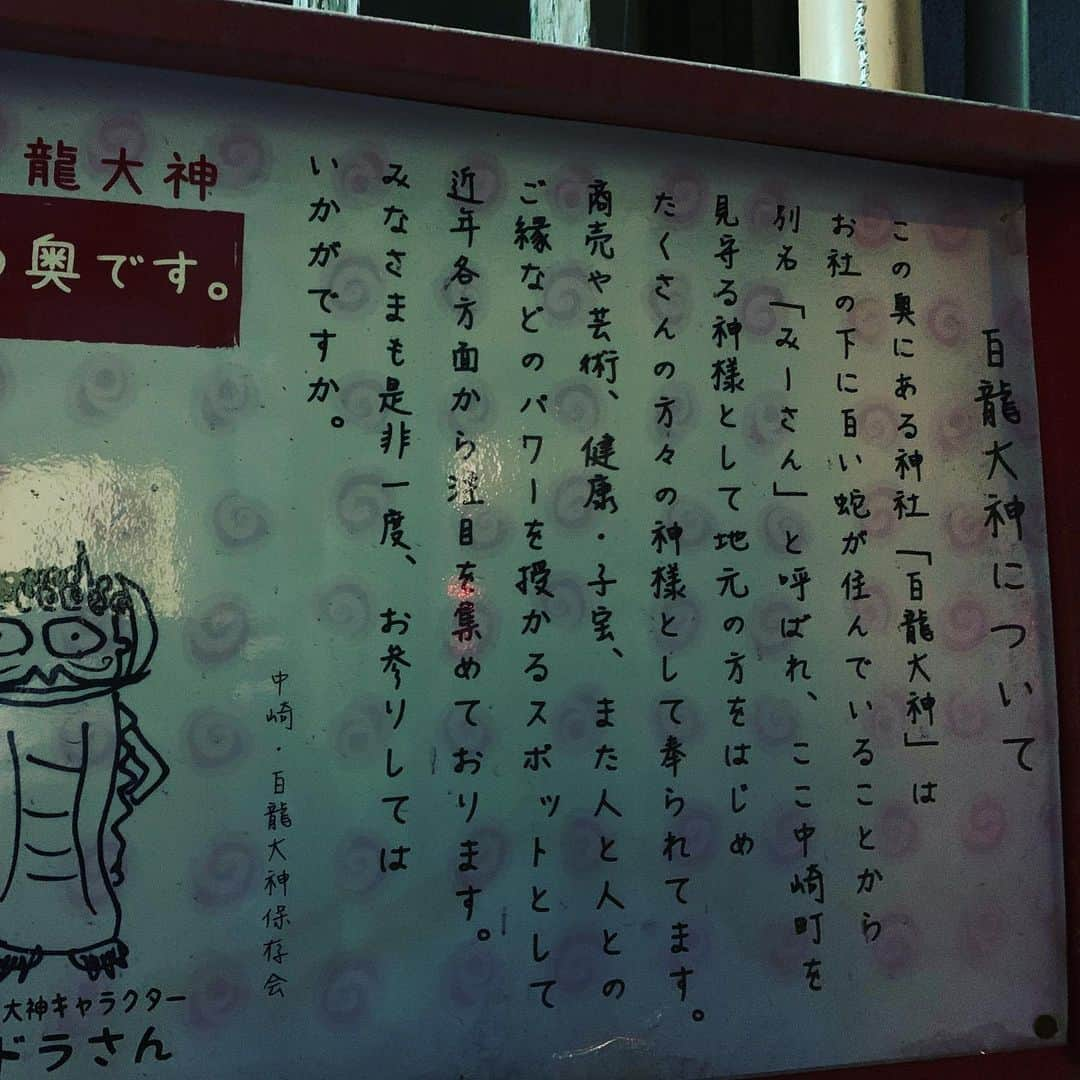 白龍大神について
この奥にある神社「白龍大神」は
お社の下に白い蛇が住んでいることから
別名「みーさん」と呼ばれ、ここ中崎町を
見守る神様として地元の方をはじめ
たくさんの方々の神様として奉られてます。
商売や芸術、健康・子宝、また人と人との
ご縁などのパワーを授かるスポットとして
近年各方面から注目を集めております。
みなさまも是非一度、お参りしては
いかがですか。
中崎・白龍大神保存会
龍大神
の奥です。
大神キャラクター
ドラさん